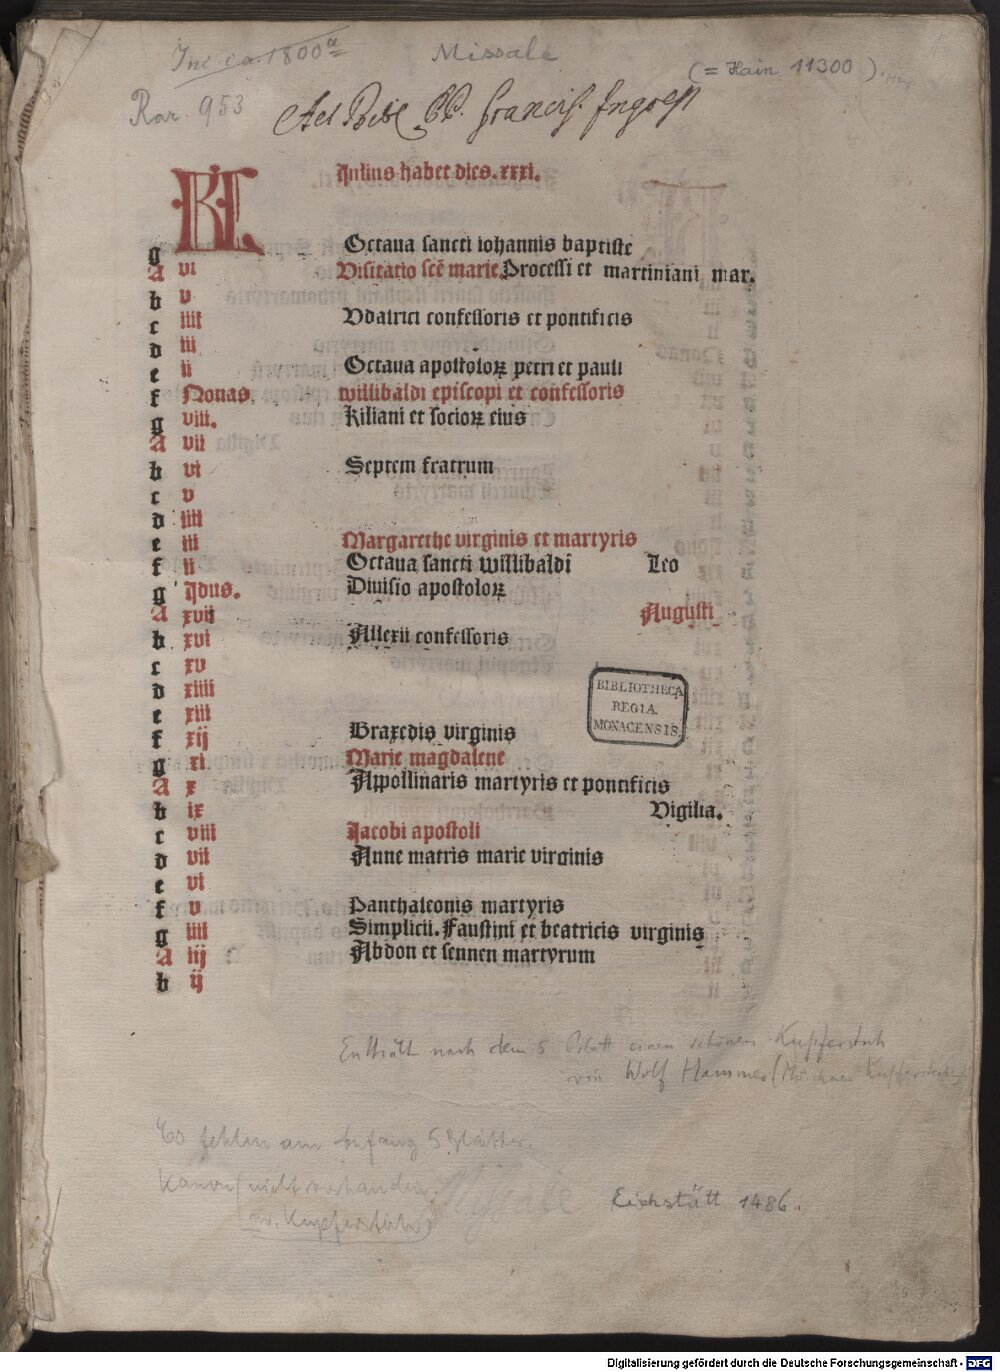 Inc. c.a. 1800 a
Missale
(= Hain 11300)
Rar. 953
Ad Bibl. PP. Francisc. Ingolst
KL Julius habet dies. xxxi.
g Octaua sancti iohannis baptiste
A vi Visitatio scē marie. Processi et martiniani mar.
b v
c iiii Vdalrici confessoris et pontificis
d iii
e ii Octaua apostoloꝝ petri et pauli
f Nonas willibaldi episcopi et confessoris
g viii. Kiliani et socioꝝ eius
A vii
b vi Septem fratrum
c v
d iiii
e iii Margarethe virginis et martyris
f ii Octaua sancti willibaldi Leo
g Jdus. Diuisio apostoloꝝ
A xvii Augusti
b xvi Allexii confessoris
c xv
d xiiii
e xiii
f xij Praxedis virginis
g xi Marie magdalene
A x Appollinaris martyris et pontificis
b ix Vigilia.
c viii Jacobi apostoli
d vii Anne matris marie virginis
e vi
f v Panthaleonis martyris
g iiii Simplicii. Faustini et beatricis virginis
A iij Abdon et sennen martyrum
b ij
BIBLIOTHECA
REGIA
MONACENSIS.
Enthält nach dem 5 Blatt einen schönen Kupferstich
von Wolf Hammer (Münchner Kupferstecher)
Es fehlen am Anfang 5 Blätter.
Kanon (nicht vorhanden
m. Kupferstich)
Missale Eichstätt 1486.
Digitalisierung gefördert durch die Deutsche Forschungsgemeinschaft - DFG